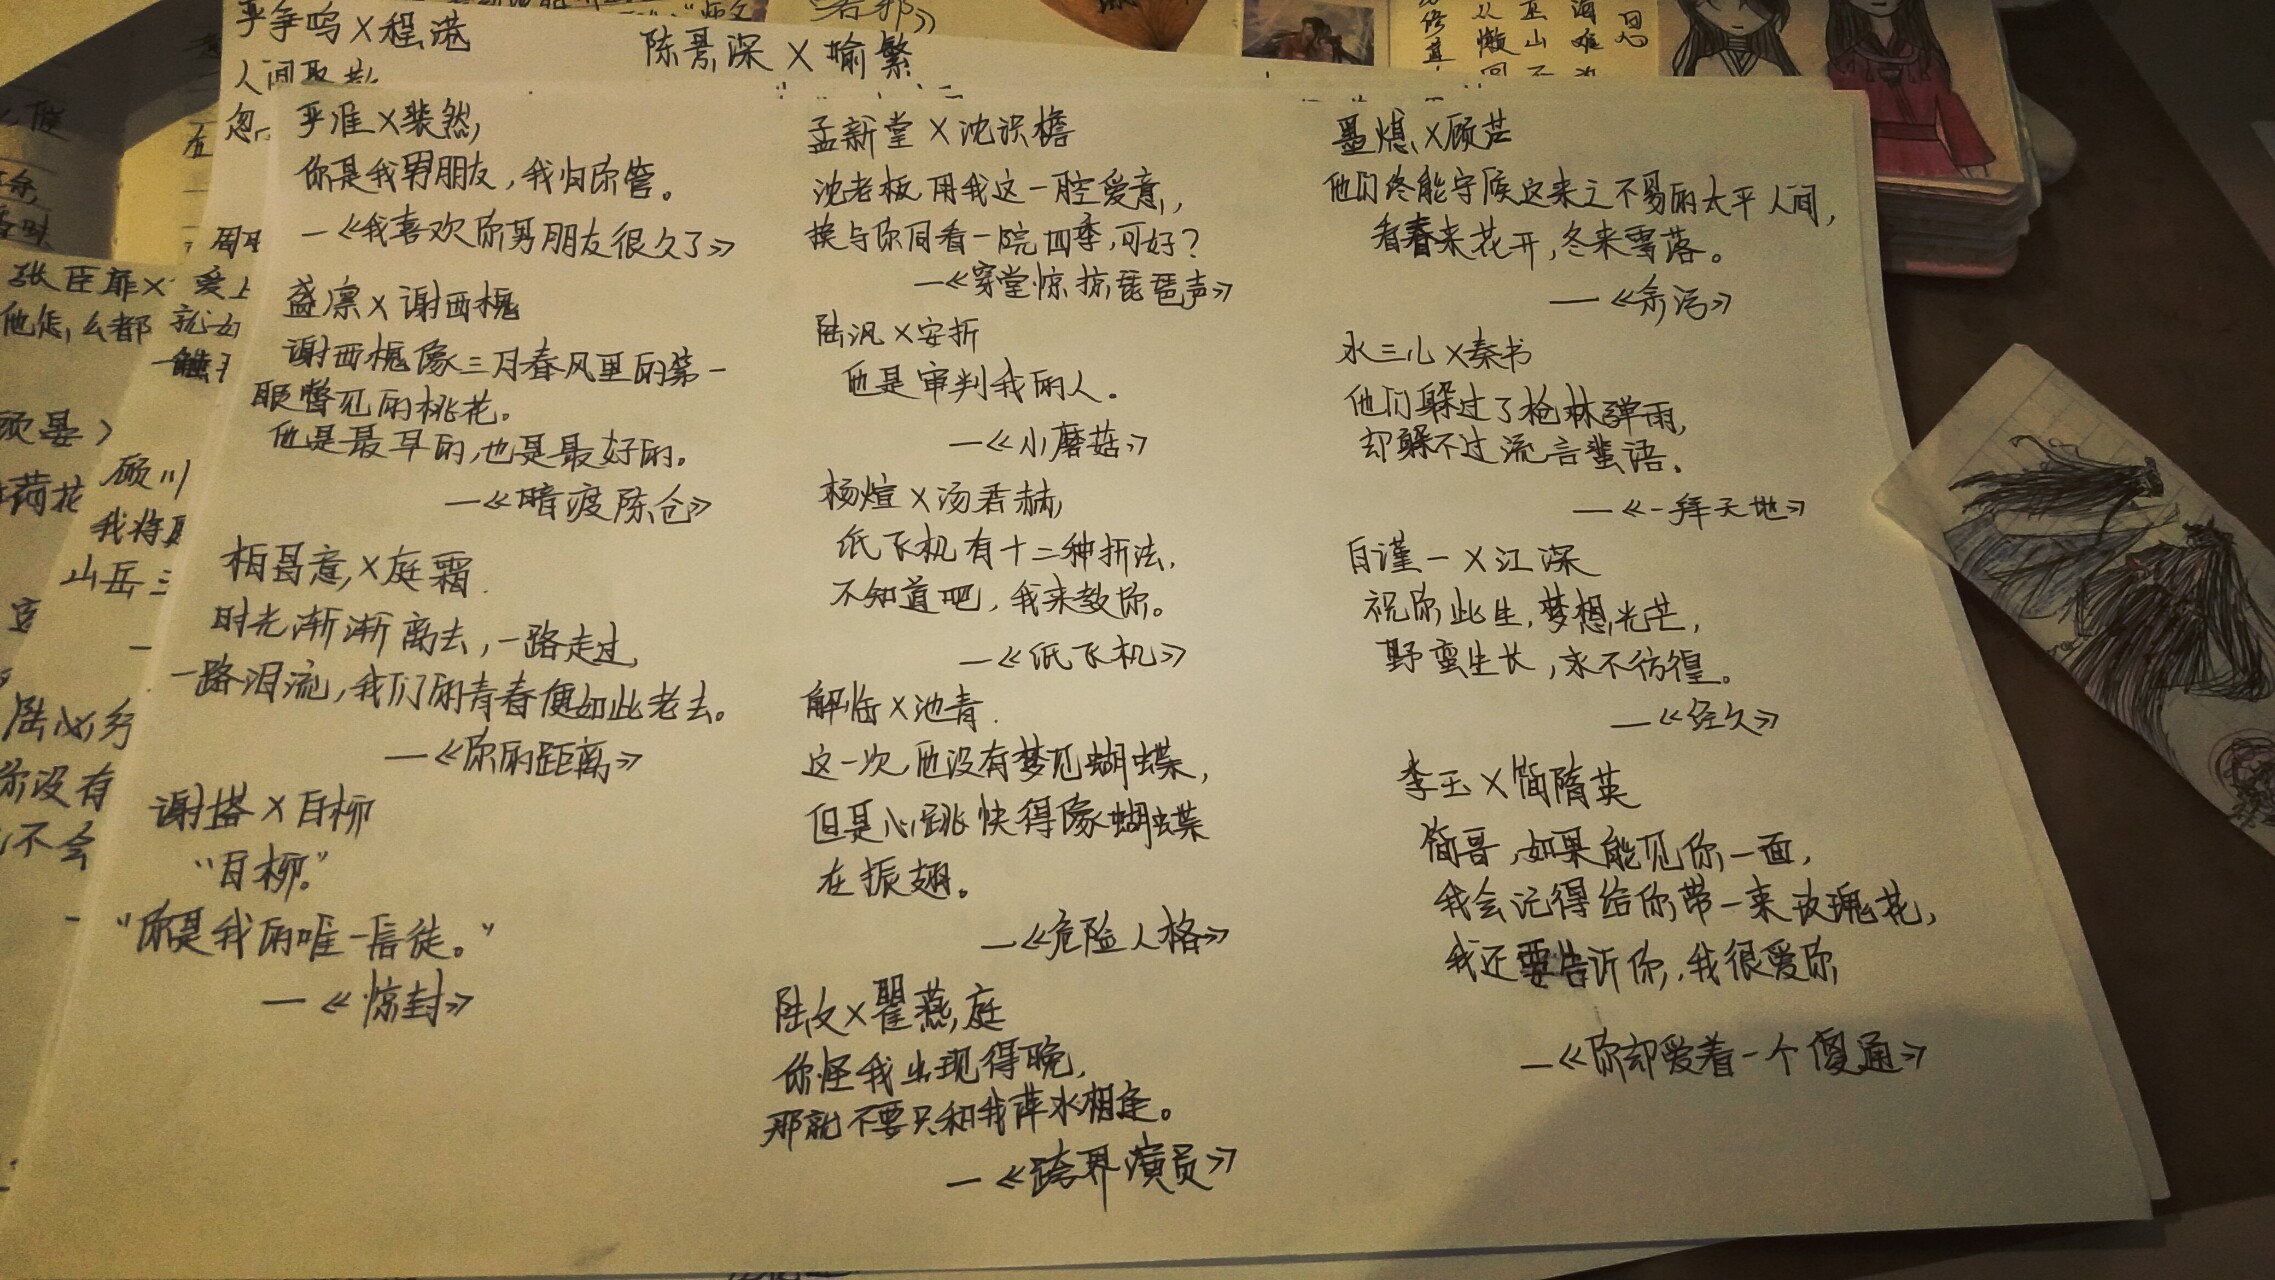 陈景深×喻繁
季淮×裴然
你是我男朋友，我归你管。
—《我喜欢你男朋友很久了》
盛凛×谢西槐
谢西槐像三月春风里的第一
眼瞥见的桃花。
他是最早的，也是最好的。
—《暗渡陈仓》
柏昌意×庭霜
时光渐渐离去，一路走过，
一路泪流，我们的青春便如此老去。
—《你的距离》
谢塔×白柳
“白柳。”
“你是我的唯一信徒。”
—《惊封》
孟新堂×沈识檐
沈老板用我这一腔爱意，
换与你同看一院四季，可好？
—《穿堂惊掠琵琶声》
陆沨×安折
他是审判我的人。
—《小蘑菇》
杨煊×汤君赫
纸飞机有十二种折法，
不知道吧，我来教你。
—《纸飞机》
解临×池青
这一次他没有梦见蝴蝶，
但是心跳快得像蝴蝶
在振翅。
—《危险人格》
陆文×瞿燕庭
你怪我出现得晚，
那就不要只和我萍水相逢。
—《跨界演员》
墨熄×顾茫
他们终能守候这来之不易的太平人间，
看春来花开，冬来雪落。
—《余污》
水三儿×秦书
他们躲过了枪林弹雨，
却躲不过流言蜚语。
—《一拜天地》
白谨一×江深
祝你此生，梦想光芒，
野蛮生长，永不彷徨。
—《经久》
李玉×简隋英
简哥，如果能见你一面，
我会记得给你带一束玫瑰花，
我还要告诉你，我很爱你
—《你却爱着一个傻逼》